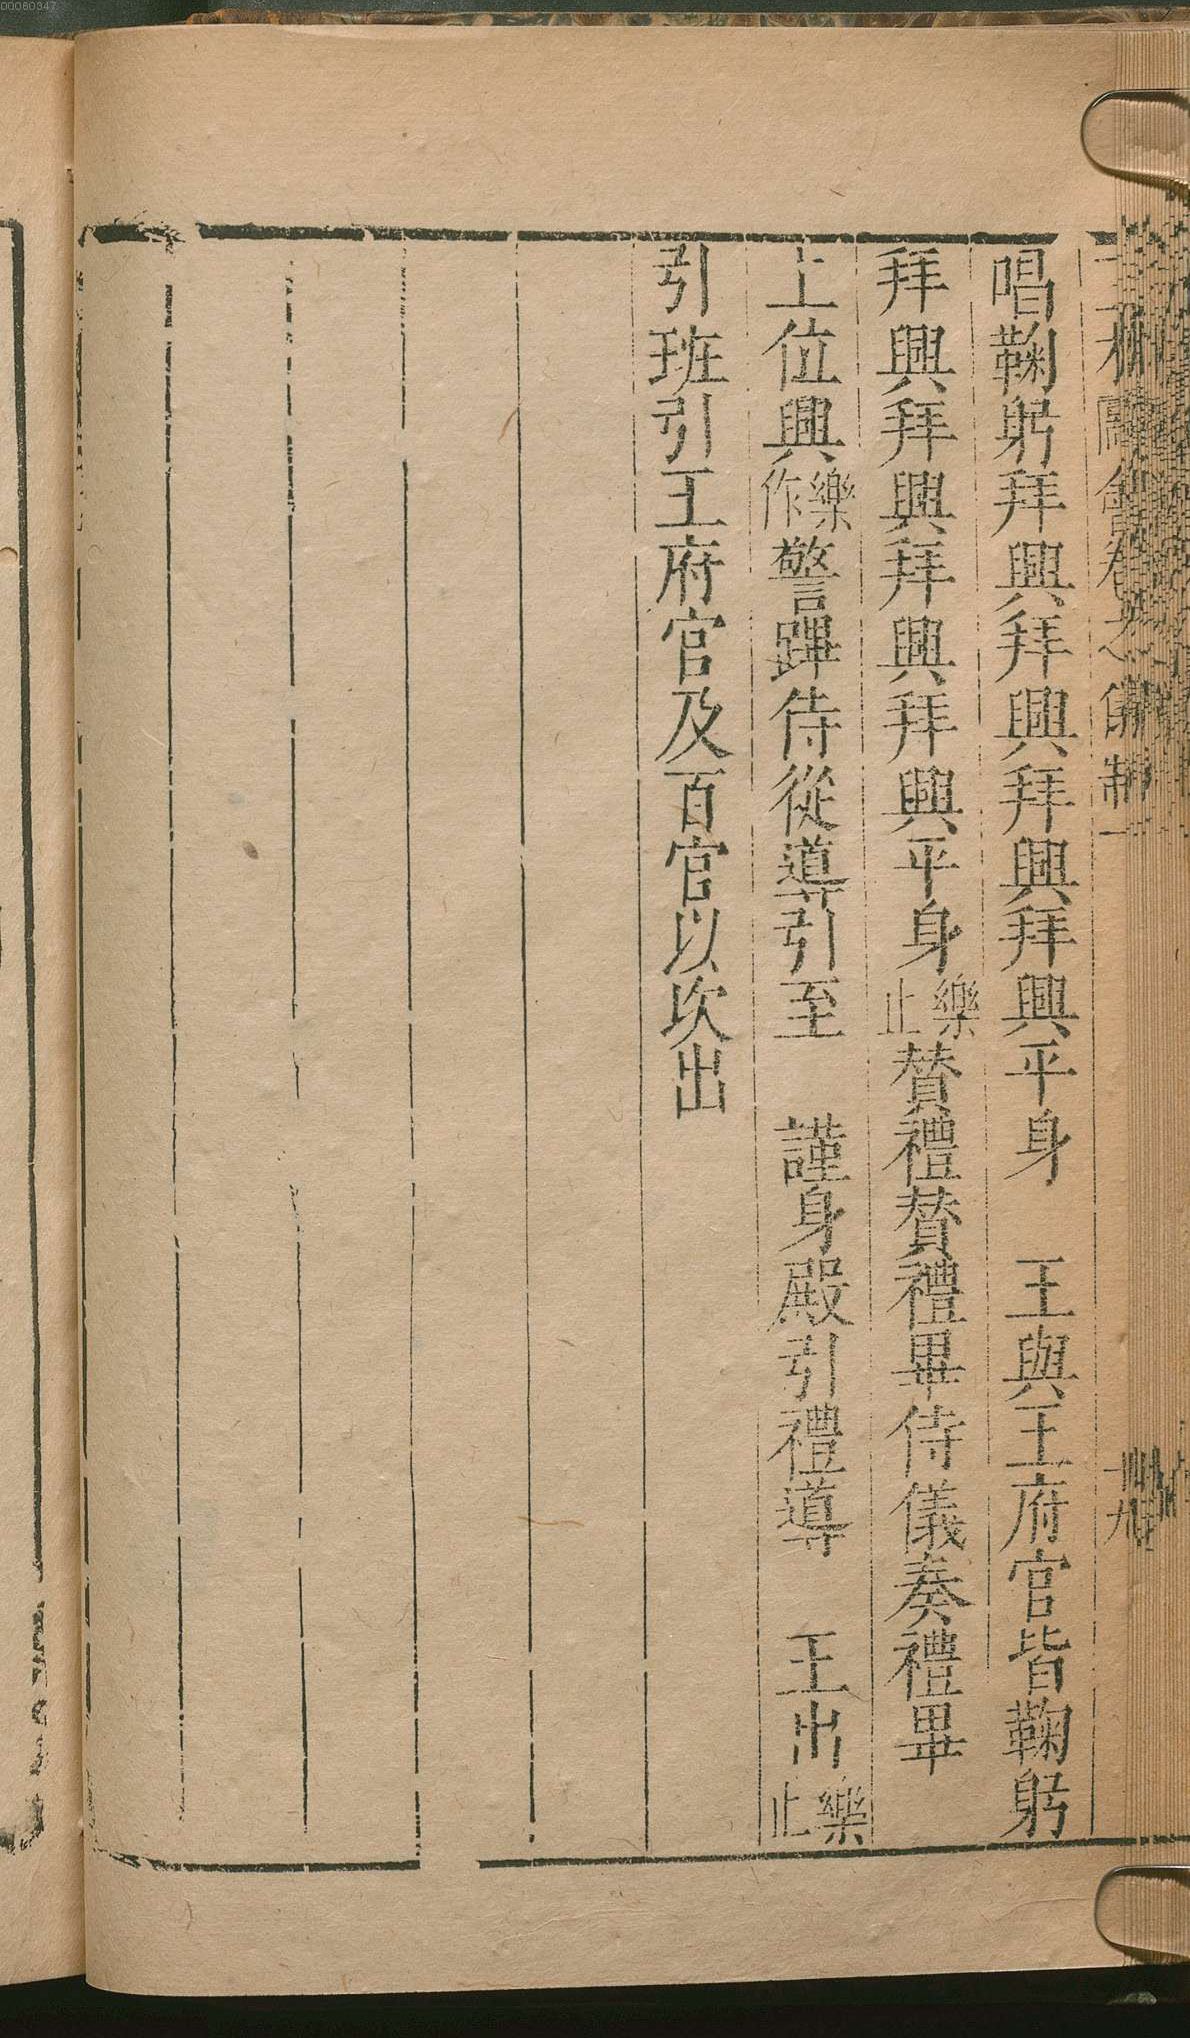 唱鞠躬拜興拜興拜興拜興平身　王與王府官皆鞠躬
拜興拜興拜興拜興平身樂止賛禮賛禮畢侍儀奏禮畢
上位興樂作警蹕侍從導引至　謹身殿引禮導　王出樂止
引班引王府官及百官以次出
00060347